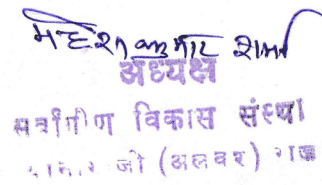 महेश कुमार शर्मा
अध्यक्ष
सर्वांगीण विकास संस्था
जी (अलवर) राज